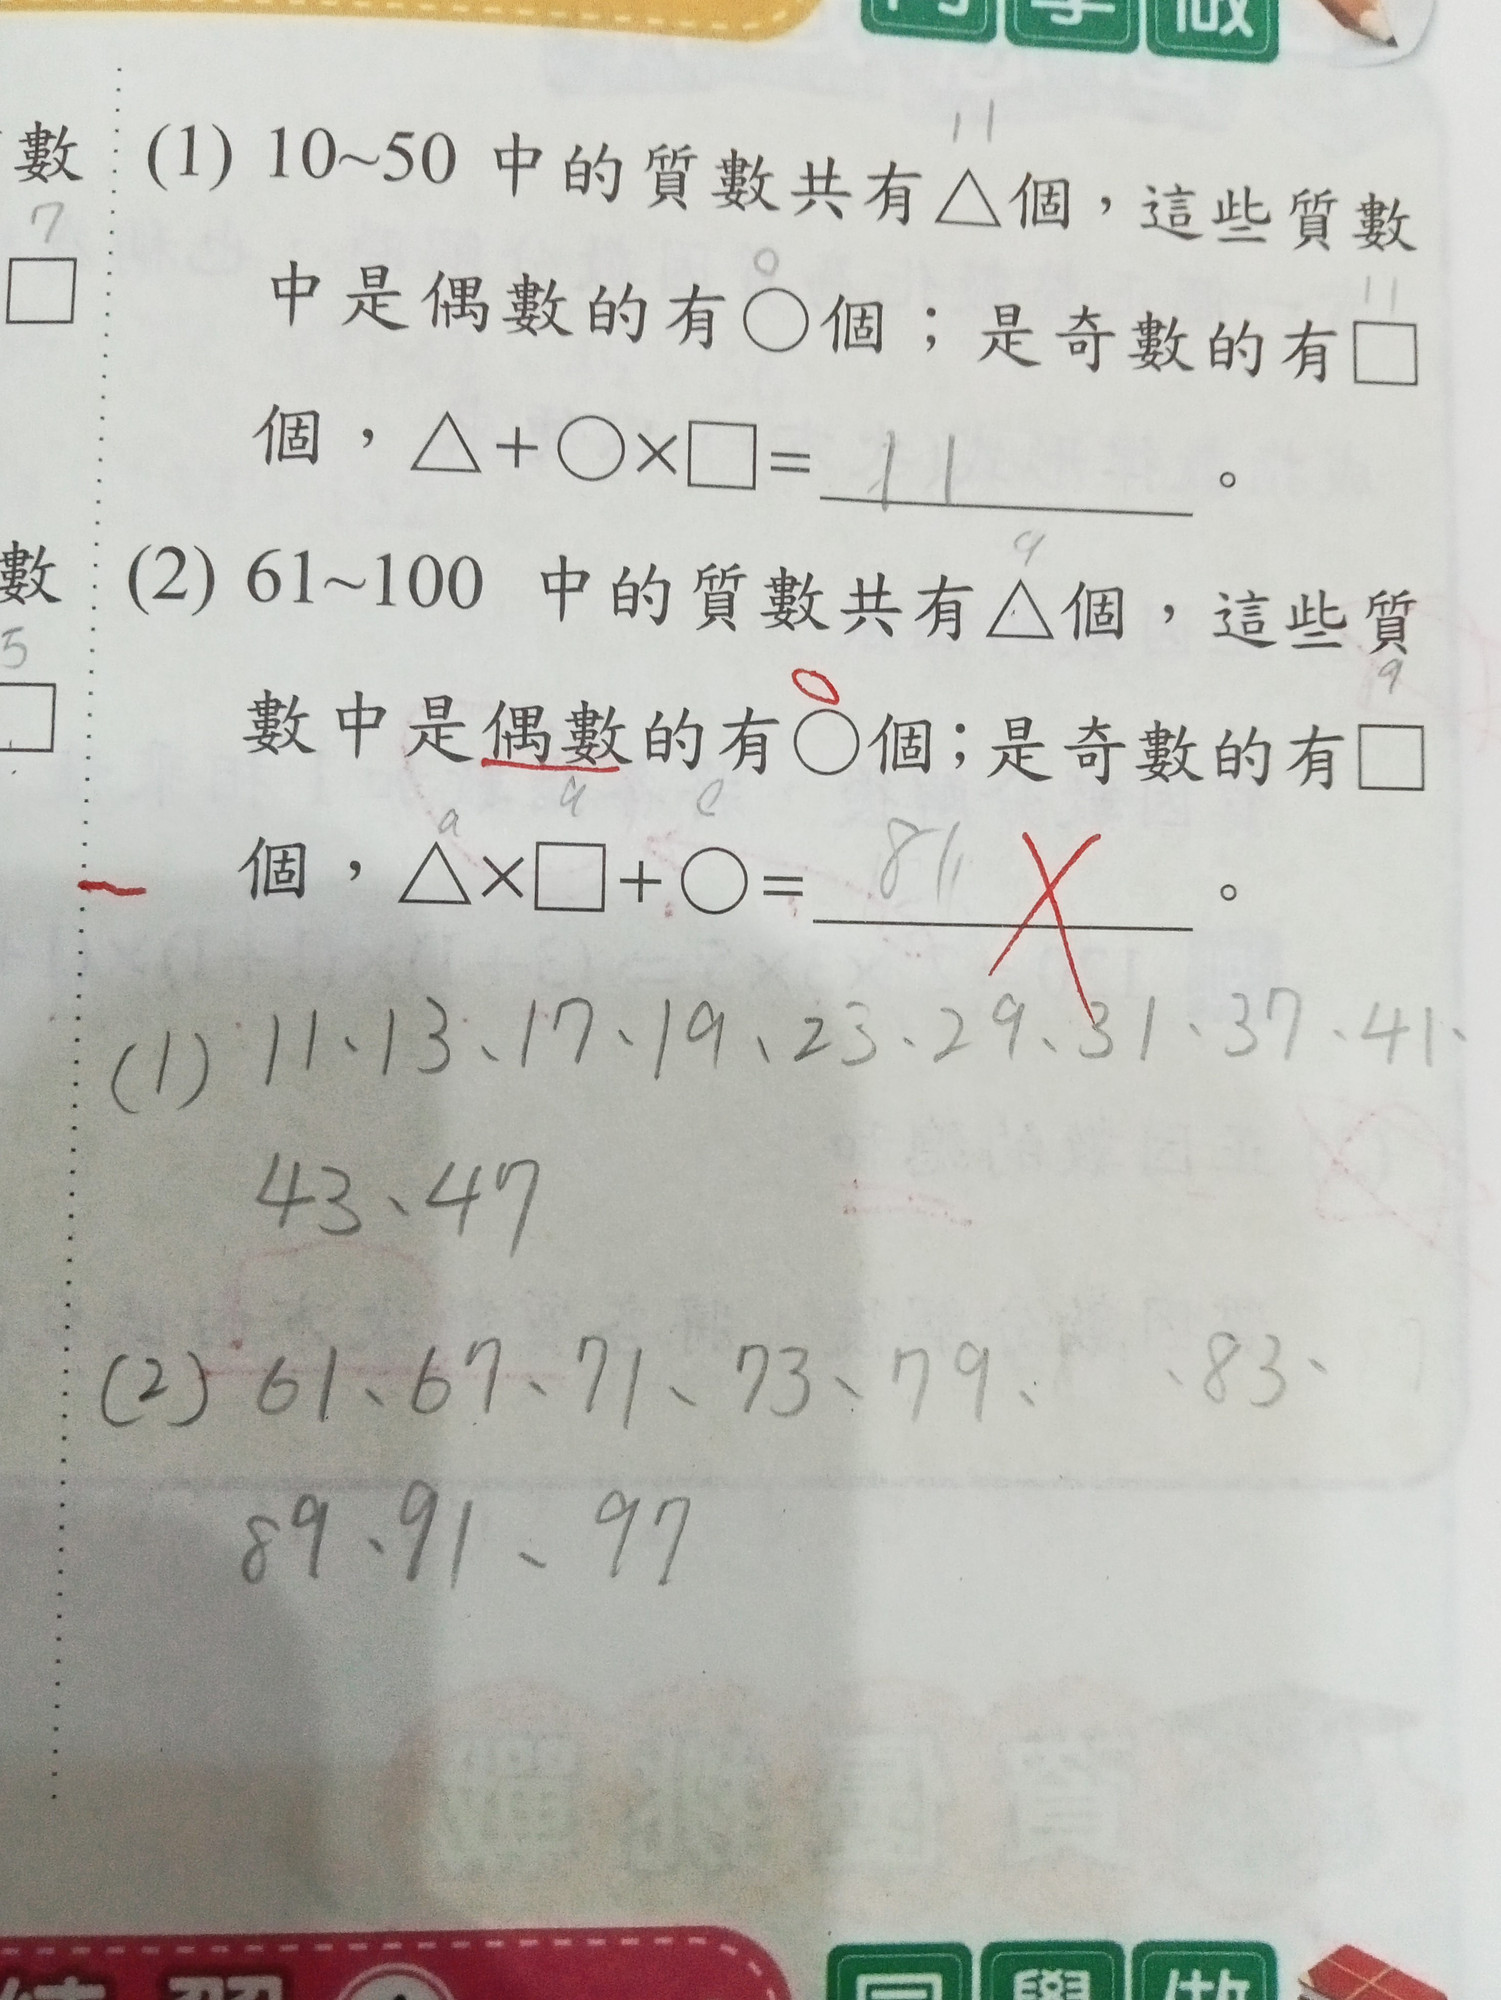 同學做
數
7
□
(1) 10~50 中的質數共有△個，這些質數
11
中是偶數的有○個；是奇數的有□
0 11
個，△+○×□= 11 。
數
5
□
(2) 61~100 中的質數共有△個，這些質
9
數中是偶數的有○個；是奇數的有□
0 9
個，△×□+○= 81 。
9 9
(1) 11、13、17、19、23、29、31、37、41、
43、47
(2) 61、67、71、73、79、 、83、
89、91、97
練習
同學做